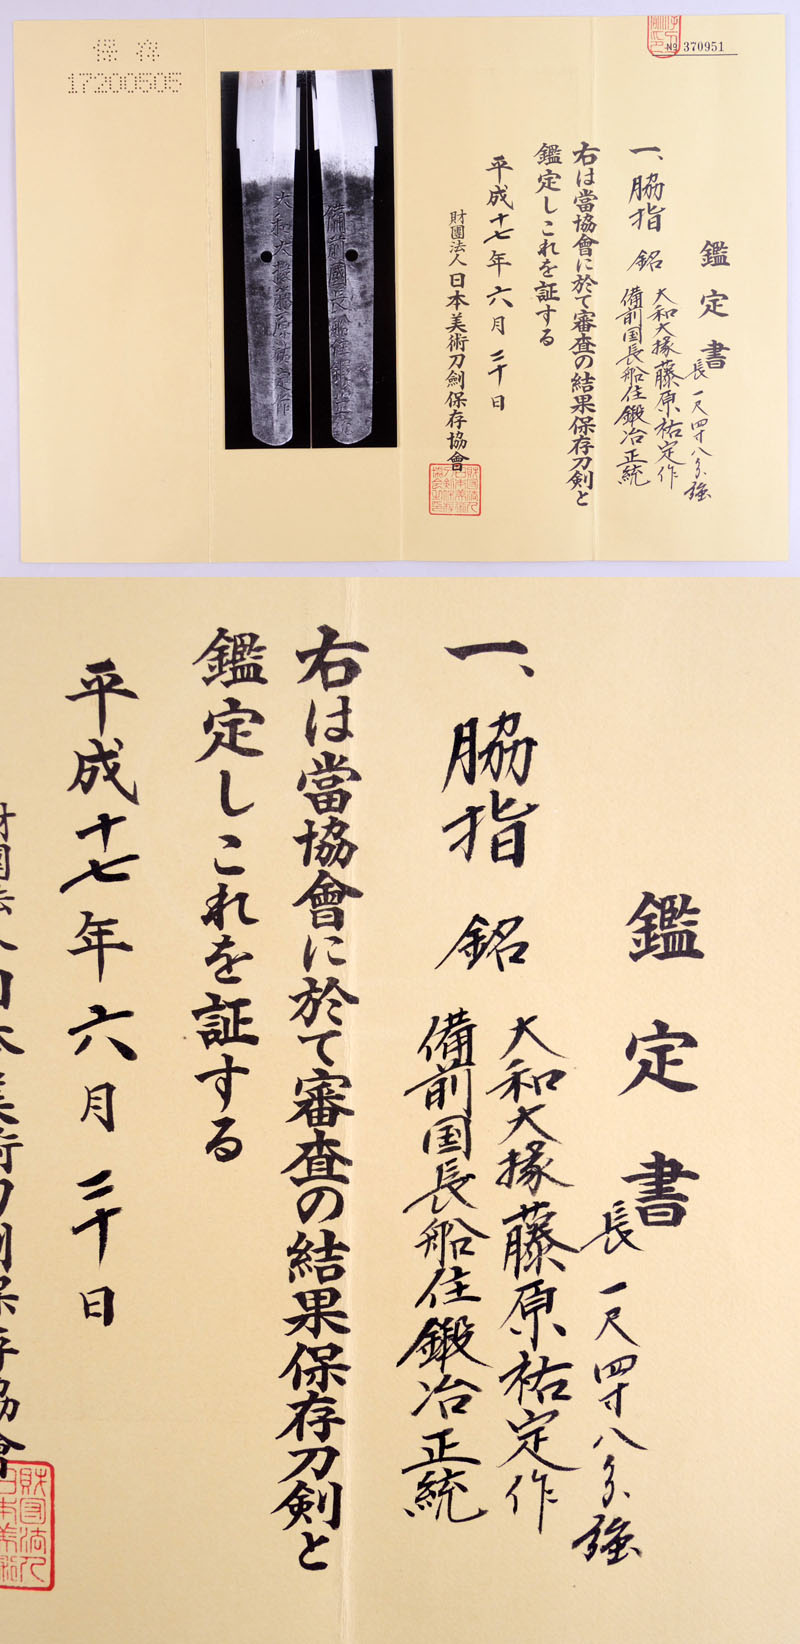 保存
17200505
№ 370951
鑑定書
長一尺四寸八分強
一、脇指 銘 大和大掾藤原祐定作
備前国長船住鍛冶正統
右は當協會に於て審査の結果保存刀剣と
鑑定しこれを証する
平成十七年六月二十日
財團法人 日本美術刀劍保存協會
大和大掾藤原祐定作
備前國長船住鍛冶正統
鑑定書
長一尺四寸八分強
一、脇指 銘 大和大掾藤原祐定作
備前国長船住鍛冶正統
右は當協會に於て審査の結果保存刀剣と
鑑定しこれを証する
平成十七年六月二十日
財團法人日本美術刀劍保存協會